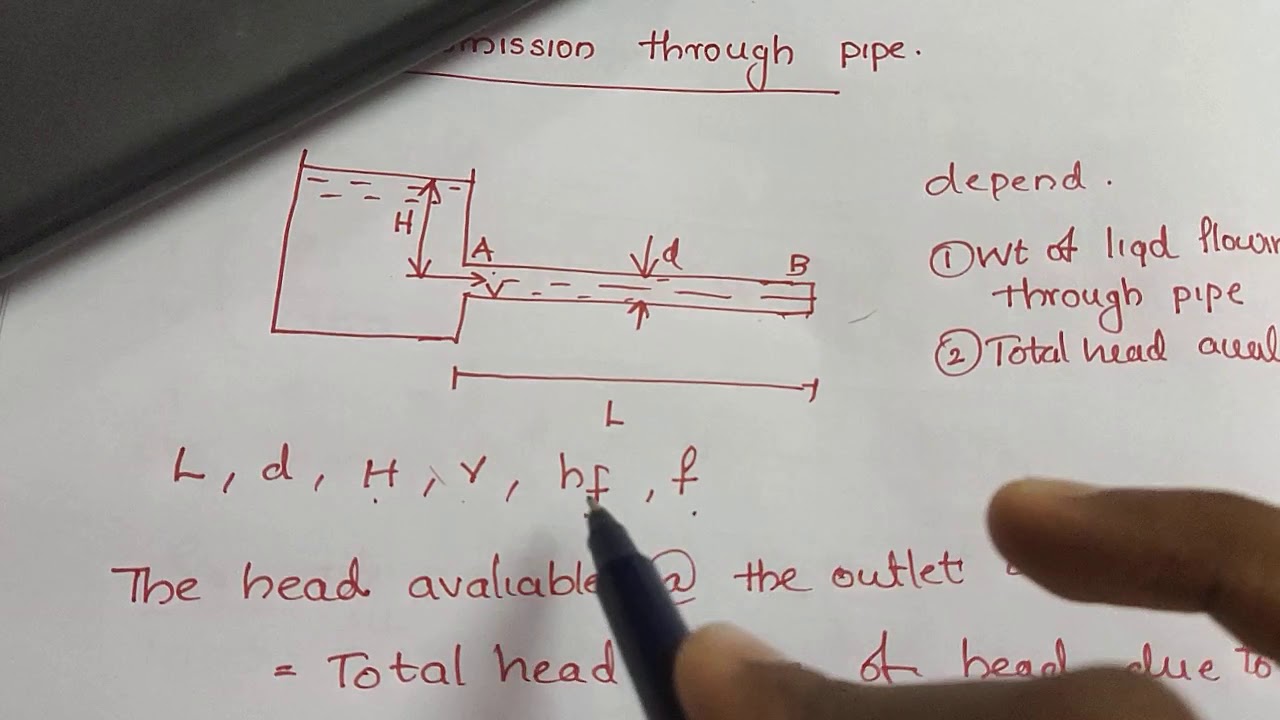 through pipe.
depend.
① Wt of liqd
through pipe
② Total head
H
A
d
B
V
L
L, d, H, V, hf, f
The head avaliable @ the outlet
= Total head of head due to